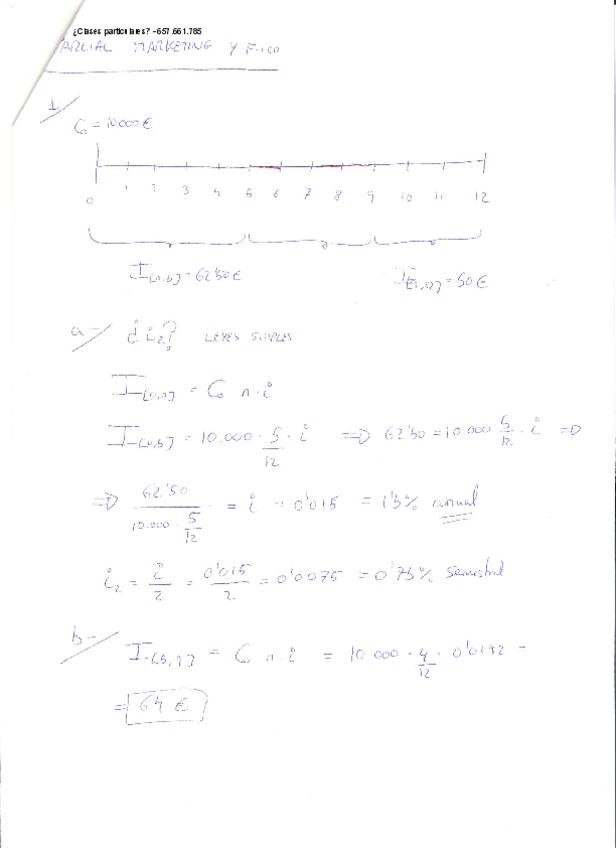 ¿Clases particulares? -657.661.785
PARCIAL MARKETING Y
1/
C₀ = 10000 €
0 1 2 3 4 5 6 7 8 9 10 11 12
I[0,5] = 62'50 € = 50 €
a- ¿i₂? LEYES SIMPLES
I[0,n] = C₀ n·i
I[0,5] = 10.000 · 5/12 · i ⇒ 62'50 = 10.000 5/12 · i ⇒
⇒ 62'50 / (10.000 · 5/12) = i = 0'015 = 1'5% anual
i₂ = i/2 = 0'015/2 = 0'0075 = 0'75% semestral
b- I[5,9] = C n·i = 10 000 · 4/12 · 0'0192 =
= 64 €